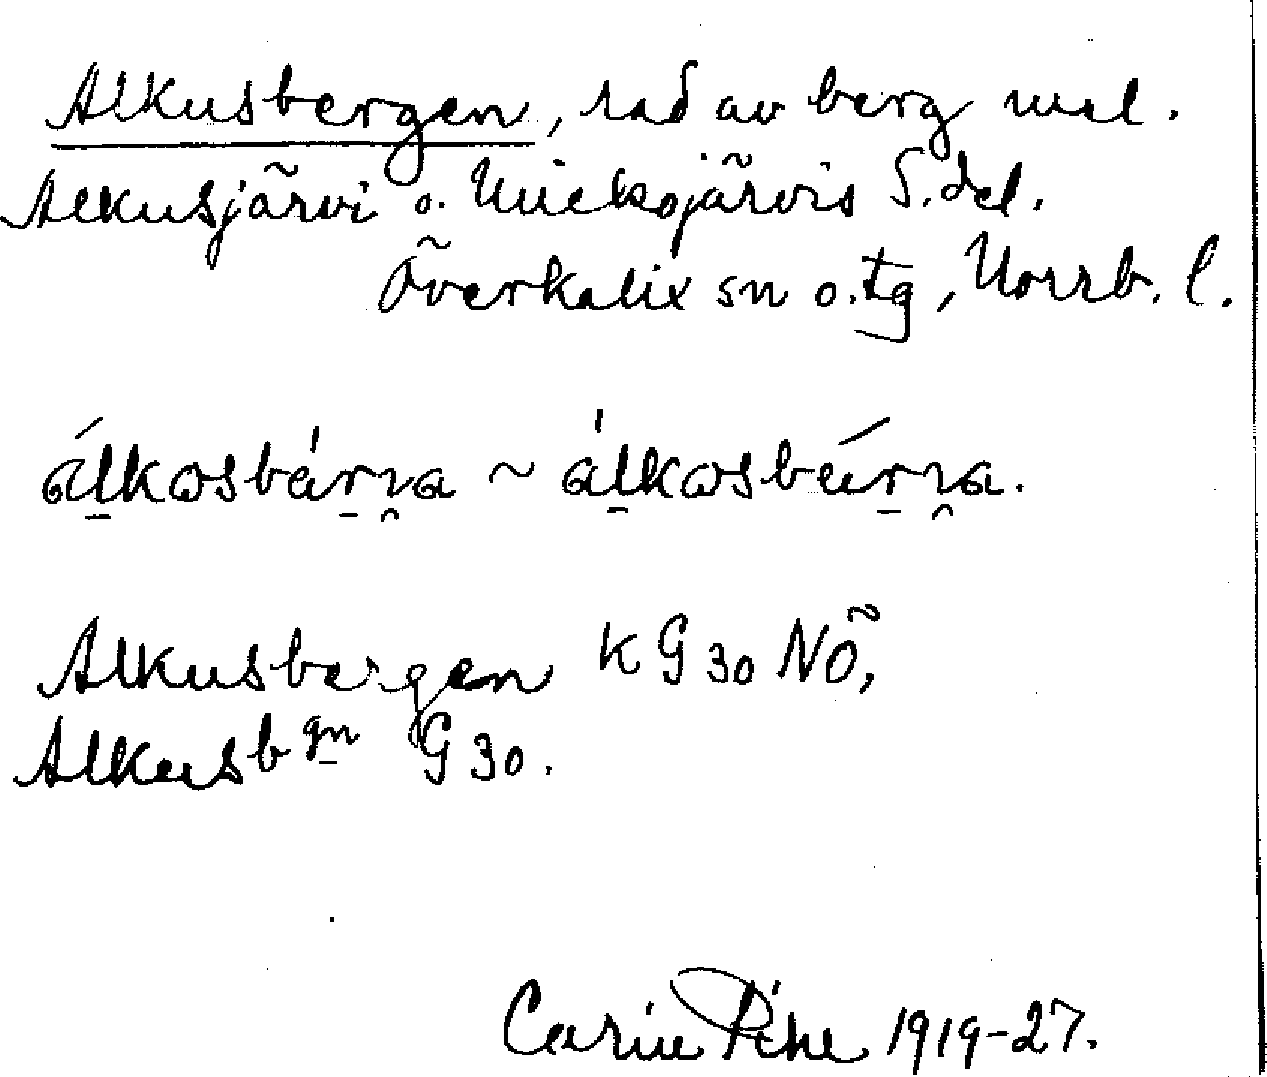 Alkusbergen, rad av berg mel.
Alkusjärvi o. Mieksojärvis S. del.
Överkalix sn o. tg, Norrb. l.
álkosbérγa ~ álkosbeérγa.
Alkusbergen k G 30 NÖ,
Alkusbgn G 30.
Carin Pihl 1919-27.